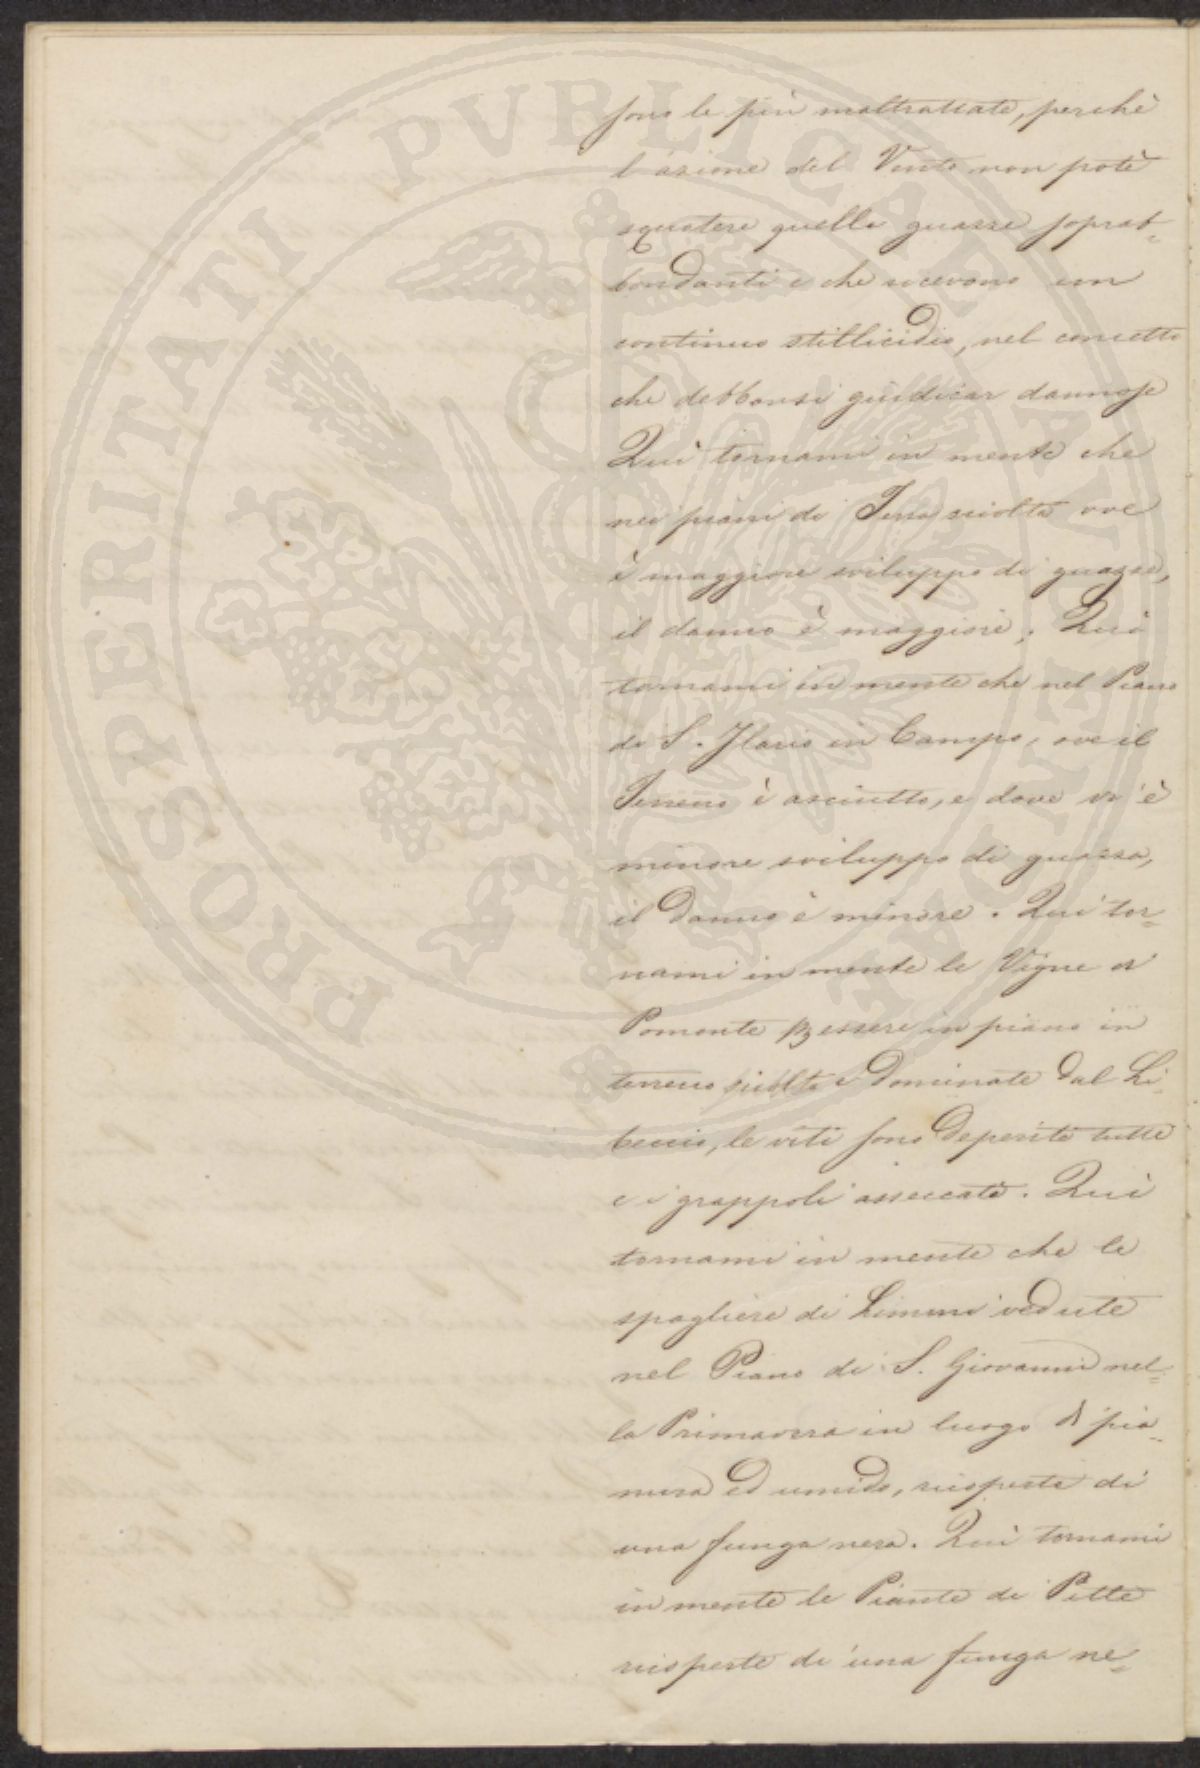 sono le più maltrattate, perchè
l'azione del Vento non potè
squotere quelle guazze soprab=
bondanti e che ricevono un
continuo stillicidio, nel concetto
che debbonsi giudicar dannose
Quì tornami in mente che
nei piani di Terra sciolta ove
è maggiore sviluppo di guazze,
il danno è maggiore; Quì
tornami in mente che nel Piano
di S. Ilario in Campo, ove il
Terreno è asciutto, e dove vi è
minore sviluppo di guazza,
il danno è minore. Quì tor=
nami in mente le Vigne di
Pomonte per essere in piano in
terreno sciolto e dominate dal Li=
beccio, le viti sono deperite tutte
e i grappoli asseccati. Quì
tornami in mente che le
spagliere di Limini vedute
nel Piano di S. Giovanni nel=
la Primavera in luogo di pia=
nura ed umido, risperte di
una funga nera. Quì tornami
in mente le Piante di Pitte
risperte di una funga ne=
PROSPERITATI PVBLICAE AVGENDAE